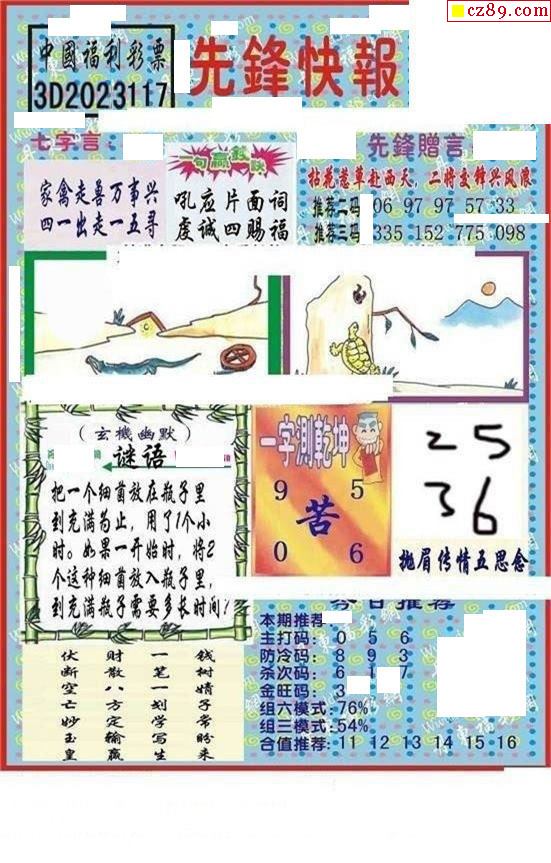 cz89.com
中國福利彩票
3D2023117
先鋒快報
七字言：
一句贏錢訣
先鋒贈言：
家禽走喜万事兴
四一出走一五寻
吼应片面词
虔诚四赐福
拈花惹草赴西天，二将交锋兴风浪
推荐二码 06 97 97 57 33
推荐三码 335 152 775 098
（玄機幽默）
谜语
把一个细菌放在瓶子里
到充满为止，用了1个小
时。如果一开始时，将2
个这种细菌放入瓶子里，
到充满瓶子需要多长时间？
一字測乾坤
9 5
苦
0 6
25
36
抛眉传情五思念
今日推荐
本期推荐
主打码: 0 5 6
防冷码: 8 9 3
杀次码: 6 1 7
金旺码: 3
组六模式:76%
组三模式:54%
合值推荐: 11 12 13 14 15 16
伏断空亡妙玉皇
财散八方定输赢
一笔一划学写生
钱树婧子常盼来